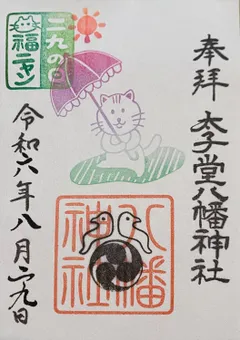 奉拝
太子堂八幡神社
八幡
神社
二九の日
福
ニャン
令和六年八月二九日